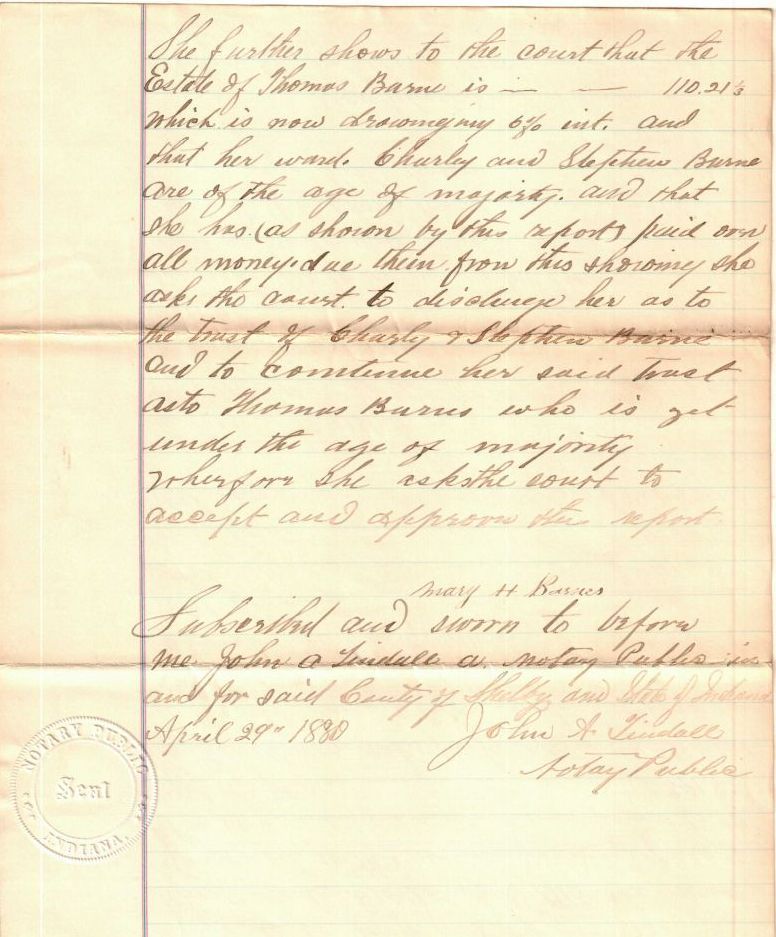 She further shows to the court that the
Estate of Thomas Barne is — — 110.21⅓
which is now drawing my 6% int. and
that her ward. Charly and Stephen Barne
are of the age of majority. and that
she has (as shown by this report) paid over
all money due them from this showing she
asks the court to discharge her as to
the trust of Charly & Stephen Barne
and to comtinue her said trust
as to Thomas Barnes who is yet
under the age of majority
Wherfore she asks the court to
accept and approve this report.
Mary H Barnes
Subscribed and sworn to before
me John A Tindall a Notary Public in
and for said County of Shelby and State of Indiana
April 29" 1880
John A Tindall
Notay Public
NOTARY PUBLIC
Seal
INDIANA.